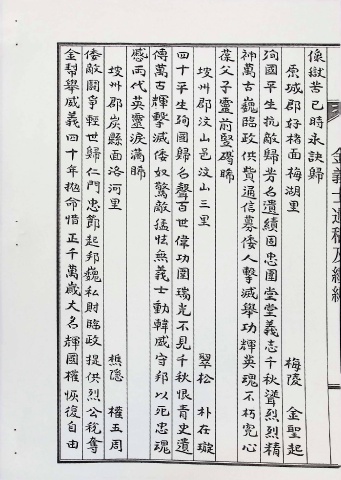 像獄苦已時永訣歸
原城郡好楮面梅湖里
梅陵 金聖起
殉國平生抗敵歸芳名遺績固忠圍堂堂義志千秋聳烈烈精
神萬古巍臨政供費通信募倭人擊滅舉功輝英魂不朽寬心
葆父子靈前竪碣晞
坡州郡汶山邑汶山三里
翠松 朴在璇
四十平生殉國歸名聲百世偉功圍瑞光不見千秋恨青史遺
傳萬古輝擊滅倭奴驚敵猛怯無義士動韓威守邦以死忠魂
感兩代英靈淚滿晞
坡州郡炭縣面洛河里
樵隱 權五周
倭敵鬪爭輕世歸仁門忠節起邦巍私財臨政提供烈公稅奪
金幇舉威義四十年抛命惜正千萬歲大名輝國權恢復自由
金義士遺稿及經緯